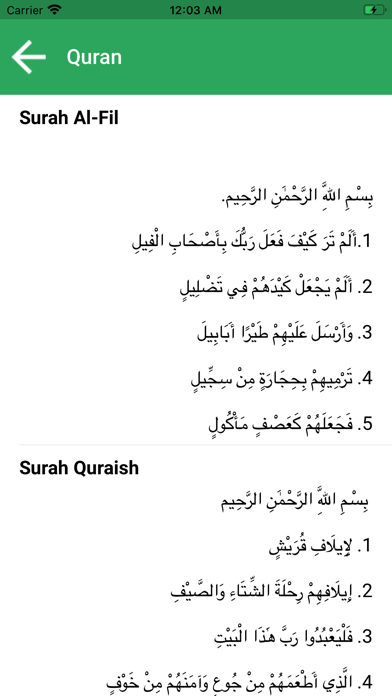 Carrier 12:03 AM
Quran
Surah Al-Fil
بِسْمِ اللَّهِ الرَّحْمَٰنِ الرَّحِيم.
1.أَلَمْ تَرَ كَيْفَ فَعَلَ رَبُّكَ بِأَصْحَابِ الْفِيلِ
2. أَلَمْ يَجْعَلْ كَيْدَهُمْ فِي تَضْلِيلٍ
3. وَأَرْسَلَ عَلَيْهِمْ طَيْرًا أَبَابِيلَ
4. تَرْمِيهِمْ بِحِجَارَةٍ مِنْ سِجِّيلٍ
5. فَجَعَلَهُمْ كَعَصْفٍ مَأْكُولٍ
Surah Quraish
بِسْمِ اللَّهِ الرَّحْمَٰنِ الرَّحِيم
1. لِإِيلَافِ قُرَيْشٍ
2. إِيلَافِهِمْ رِحْلَةَ الشِّتَاءِ وَالصَّيْفِ
3. فَلْيَعْبُدُوا رَبَّ هَٰذَا الْبَيْتِ
4. الَّذِي أَطْعَمَهُمْ مِنْ جُوعٍ وَآمَنَهُمْ مِنْ خَوْفٍ